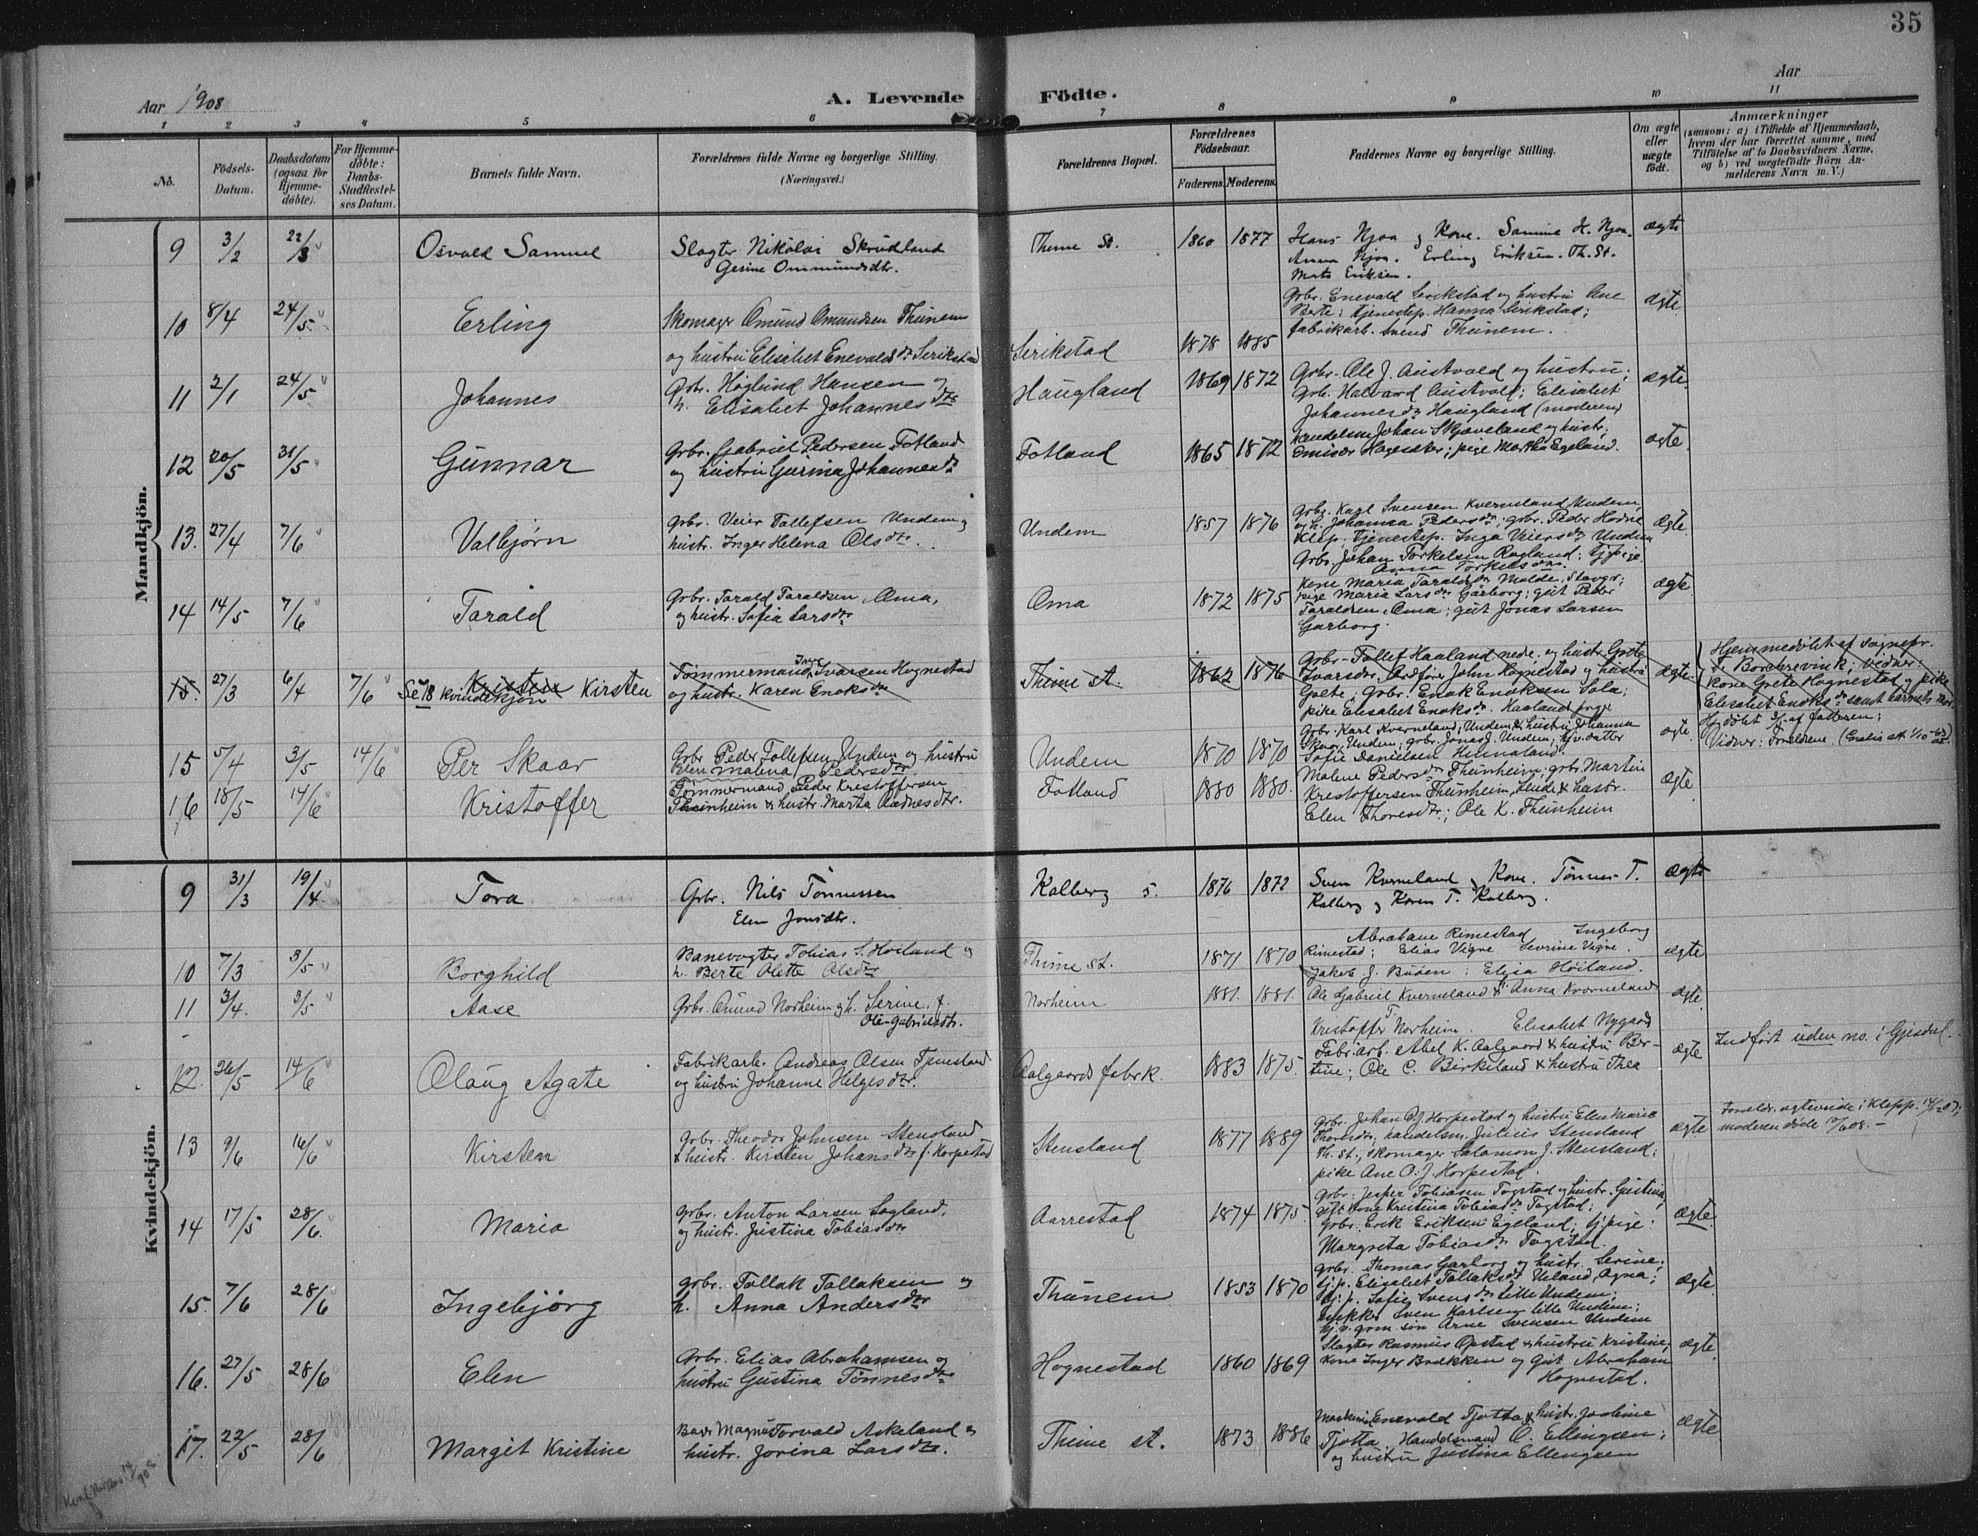 35
Aar 1908
A. Levende Födte.
Aar
1 2 3 4 5 6 7 8 9 10 11
No.
Födsels-Datum.
Daabsdatum (ogsaa for Hjemmedöbte).
For Hjemmedöbte: Daabs-Stadfæstelses Datum.
Barnets fulde Navn.
Forældrenes fulde Navne og borgerlige Stilling.
(Næringsvei.)
Forældrenes Bopæl.
Forældrenes Födselsaar.
Faderens. Moderens.
Faddernes Navne og borgerlige Stilling.
Om ægte eller uægte födt.
Anmærkninger
(saasom: a) i Tilfælde af Hjemmedaab, hvem der har forrettet samme, med Tilföielse af to Daabsvidners Navne, og b) ved uægtefödte Börn Anmelderens Navn m. V.)
Mandkjön.
9 3/2 22/3 Osvald Samuel Slagter Nikolai Skrudland Thime St. 1860 1877 Hans Njaa og Kone. Samine H. Njaa. ægte
Gesine Ommundsdtr. Anna Njaa. Erling Eriksen. Th. St.
Mats Eriksen.
10 8/4 24/5 Erling Skomager Omund Omundsen Thunem Grbr. Enevald Serikstad og hustru Ane ægte
Berte; tjenestep. Hanna Serikstad;
og hustru Elisabet Enevaldsdtr Serikstad Serikstad 1878 1885 fabrikarb. Svend Thunem.
11 2/1 24/5 Johannes Grbr. Höglund Hansen og Haugland 1869 1872 Grbr. Ole J. Austvold og hustru; ægte
h. Elisabet Johannesdtr Grbr. Halvard Austvold; Elisabet
Johannesdtr Haugland (moderen)
12 20/5 31/5 Gunnar Grbr. Gabriel Pedersen Fotland Fotland 1865 1872 Handelsm Johan Skjæveland og hustr; ægte
og hustru Gurina Johannesdtr Emisær Hagesæter; pige Martha Egeland.
13. 27/4 7/6 Valbjørn Grbr. Veier Tollefsen Undem og Undem 1857 1876 Grbr. Karl Svensen Kverneland, Undem ægte
hustr. Inger Helena Olsdtr. og h. Johanna Pedersdtr; grbr. Peder Hodne
Klep; tjenestep. Inga Veiersdtr Undem
Grbr. Johan Torkelsen Rugland; tj.pige
Anna Torkelsdtr.
14 14/5 7/6 Tarald Grbr. Tarald Taraldsen Oma, Oma 1872 1875 Kone Maria Taraldsdtr Malde, Stavgr; ægte
og hustr. Sofia Larsdtr pige Maria Larsdtr Garborg; gut Peder
Taraldsen Oma; gut Jonas Larsen
Garborg.
15. 27/3 6/4 7/6 Se 18 kvindekjøn Kristen Kirsten Tømmermand Ivar Ivarsen Hognestad Thime st. 1862 1876 Grbr. Tollef Haaland nedre, og hustr. Gote ægte Hjemmedöbt af Sognepr.
og hustr. Karen Enoksdtr Ivarsdtr; Ordförer John Hognestad og hustru Borchrevink; vidner:
Grete; Grbr. Enok Enoksen Sola; kone Grete Hognestad og pike
pike Elisabet Enoksdtr. Haaland Elisabet Enoksdtr samt barnets mor.
15 5/4 3/5 14/6 Per Skaar Grbr Peder Tollefsen Undem og hustru Undem 1870 1870 Grbr. Karl Kverneland, Undem & hustru Johanna ægte. Hj.döbt af faderen;
Elen Malena Pedersdtr Skaar, Undem; grbr. Jonas J. Undem; Vidner: Forældrene.
Sofie Danielsen Heimaland.
16 18/5 14/6 Kristoffer Tømmermand Peder Kristoffersen Fotland 1880 1880. Malene Pedersdtr Theinheim, grbr. Martin ægte
Theinheim & hustr. Marta Aadnesdtr. Krestoffersen Theinheim, Lende & hustr.
Elen Thoresdtr; Ole K. Theinheim
Kvindekjön.
9 31/3 19/4 Tora Grbr. Nils Tönnessen Kalberg s. 1876 1872 Sven Kverneland & Kone. Tønnes T. ægte
Elen Jonsdtr. Kalberg og Karen T. Kalberg.
10 7/3 3/5 Borghild Banevogter Tobias S. Høiland og Thime st. 1871 1870 Abrahane Rimestad Ingeborg ægte
h. Berte Olette Olsdtr Rimestad; Elias Vigre Severine Vigre.
Jakob J. Buöen; Elisa Höiland.
11 3/4. 3/5 Aase Grbr. Omund Norheim og h. Serine, f. Norheim 1881. 1881. Ole Gabriel Kverneland & Anna Kverneland ægte
Ole-Gabrielsdtr. Kristoffer T. Norheim. Elisabet Nygaard
12. 26/5 14/6 Olaug Agate Fabrikarb. Andreas Olsen Tjensland Aalgaards fabrk. 1883 1875. Fabr.arb. Abel K. Aalgaard & hustru Ber- ægte Indført uden no. i Gjesdal.
og hustru Johanne Helgesdtr. tine; Ole C. Birkeland & hustru Thea
13 9/6 16/6 Kirsten Grbr. Theodor Johnsen Stensland Stensland 1877 1889 Grbr. Johan O.J. Horpestad og hustru Elen Marie ægte Foreldr. ægteviede i Klepp.
& hustr. Kirsten Johansdtr f. Horpestad Thoresdtr; handelsm. Julius Stensland moderen döde 12/6 08.
Th. St., Skomager Salamon J. Stensland;
pike Ane O. J. Horpestad.
14 17/5 28/6. Maria Grbr. Anton Larsen Sagland, Aarrestad 1874 1875. Grbr. Jesper Tobiasen Togstad og hustr. Gustina; ægte.
og hustr. Justina Tobiasdtr gift kone Kristina Tobiasdtr Togstad;
Grbr. Erik Eriksen Egeland; tj.pige:
Margreta Tobiasdtr Togstad.
15. 7/6 28/6 Ingebjörg Grbr. Tollak Tollaksen og Thunem 1853 1870 Grbr. Thomas Garborg og hustr. Serine; ægte.
h. Anna Andersdtr tj.p. Elisabet Tollaksdtr Ueland, Ogna;
tj.p. Sofie Svensdtr Lille Undem;
Enkem. Sven Karlsen lille Undem;
søn Arne Svensen Undem
16. 27/5 28/6 Elen Grbr. Elias Abrahamsen og Hognestad 1860 1869 Slagter Rasmus Opstad & hustru Kristine, ægte.
hustru Gustina Tønnesdtr Kone Inger Brekken og Gut Abraham
Hognestad.
17. 22/5 28/6 Margit Kristine Magnus Torvald Askeland og Thime st. 1873 1886 Enevald Tjotta & hustr. Josline ægte
hustr. Jorina Larsdtr. Tjotta, Handelsmand O. Ellingsen;
og hustru Justina Ellengsen